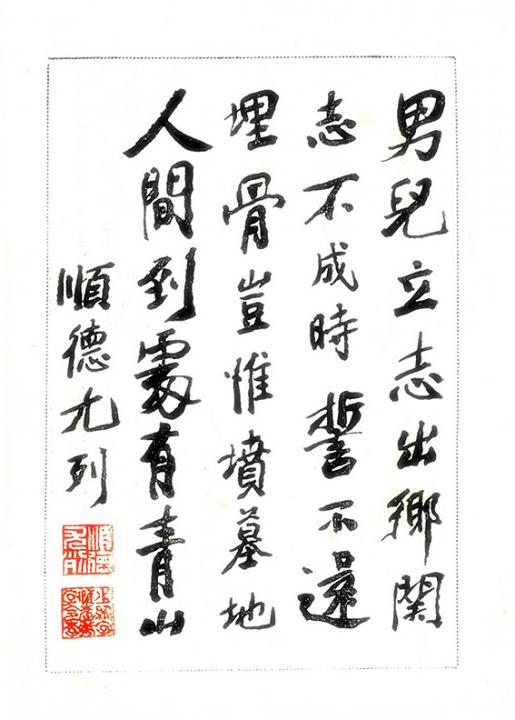 男兒立志出鄉關
志不成時誓不還
埋骨豈惟墳墓地
人間到處有青山
順德尤列